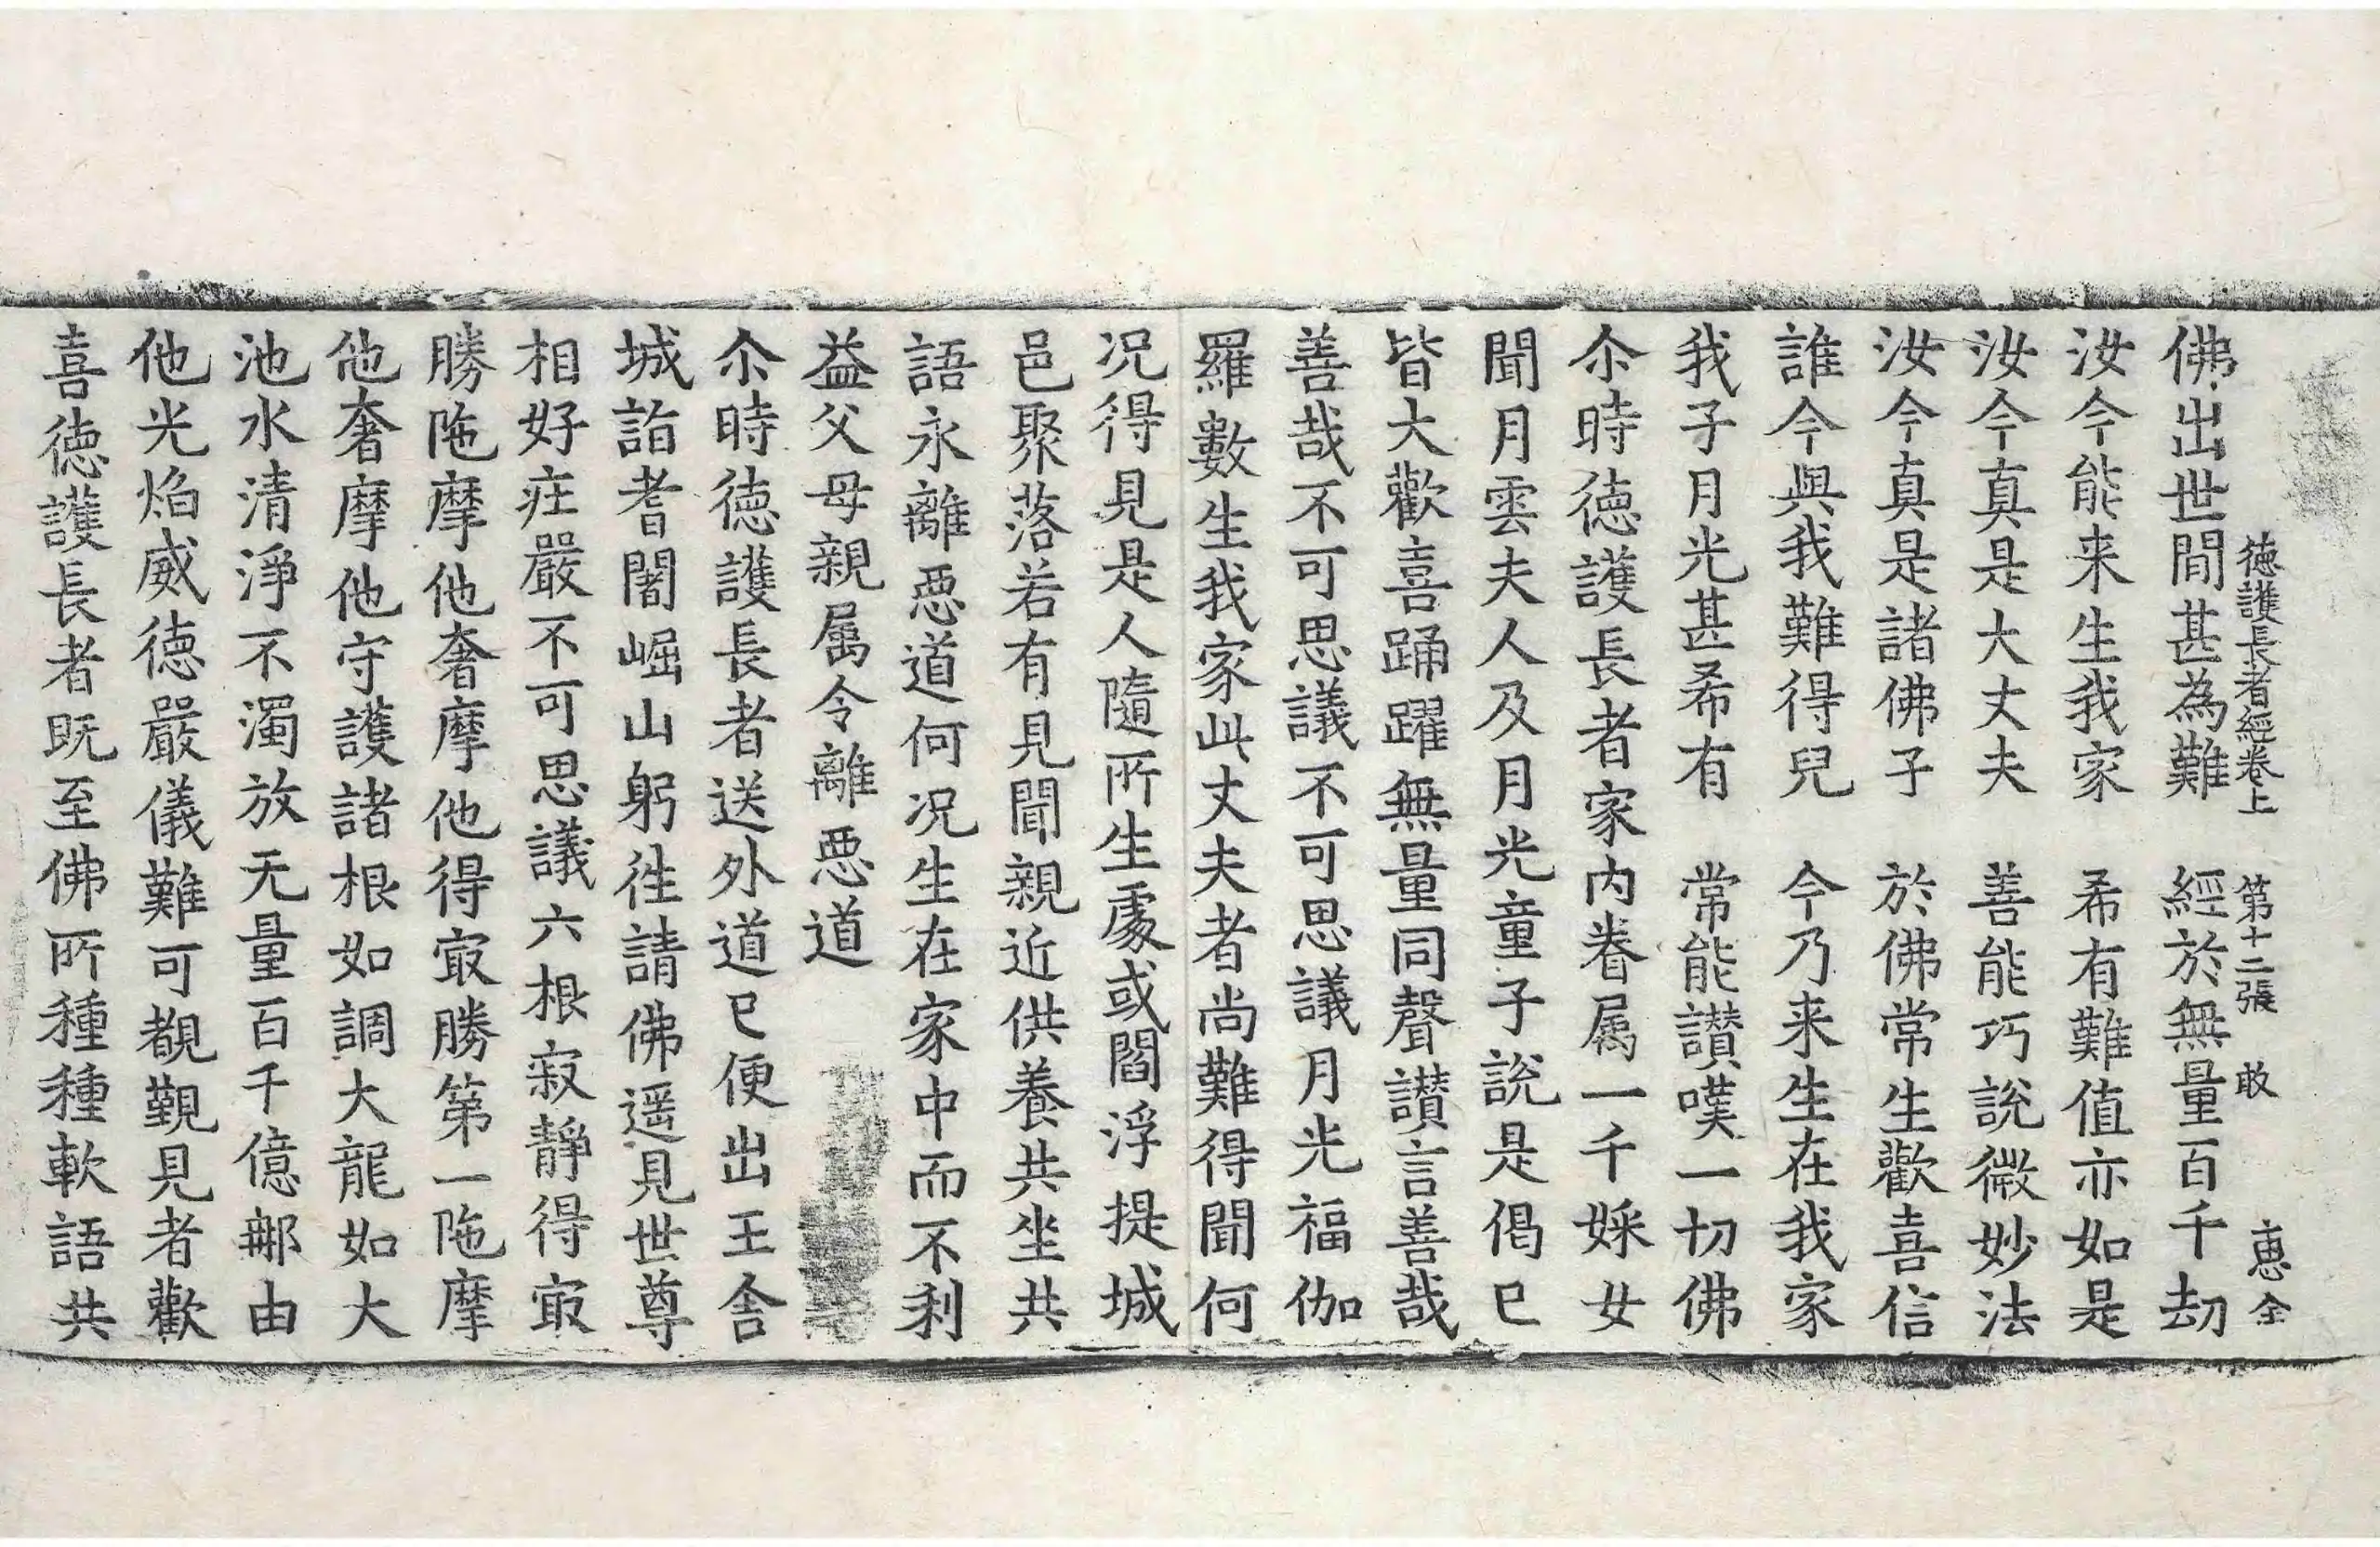 徳護長者經卷上　第十二張　敢　惠全
佛出世間甚為難　經於無量百千劫
汝今能来生我家　希有難值亦如是
汝今真是大丈夫　善能巧說微妙法
汝今真是諸佛子　於佛常生歡喜信
誰今與我難得兒　今乃来生在我家
我子月光甚希有　常能讃嘆一切佛
尒時徳護長者家内眷属一千婇女
聞月雲夫人及月光童子說是偈已
皆大歡喜踊躍無量同聲讃言善哉
善哉不可思議不可思議月光福伽
羅數生我家此丈夫者尚難得聞何
况得見是人隨所生處或閻浮提城
邑聚落若有見聞親近供養共坐共
語永離惡道何况生在家中而不利
益父母親属令離惡道
尒時徳護長者送外道已便出王舍
城詣耆闍崛山躬往請佛遥見世尊
相好庄嚴不可思議六根寂靜得㝡
勝陁摩他奢摩他得㝡勝第一陁摩
他奢摩他守護諸根如調大龍如大
池水清淨不濁放无量百千億那由
他光焰威徳嚴儀難可覩觀見者歡
喜徳護長者既至佛所種種軟語共